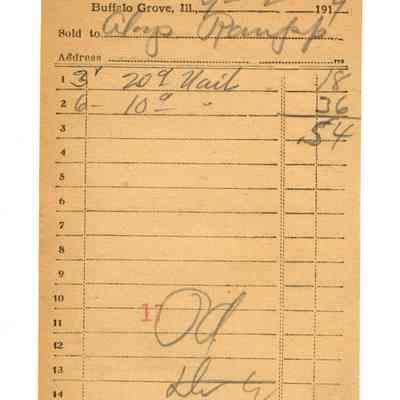 Buffalo Grove, Ill., 191
Sold to Aloys
Address
1 3# 20d Nail 18
2 6 - 10d " 36
3 .54
4
5
6
7
8
9
10
11 17 Pd
12
13
14